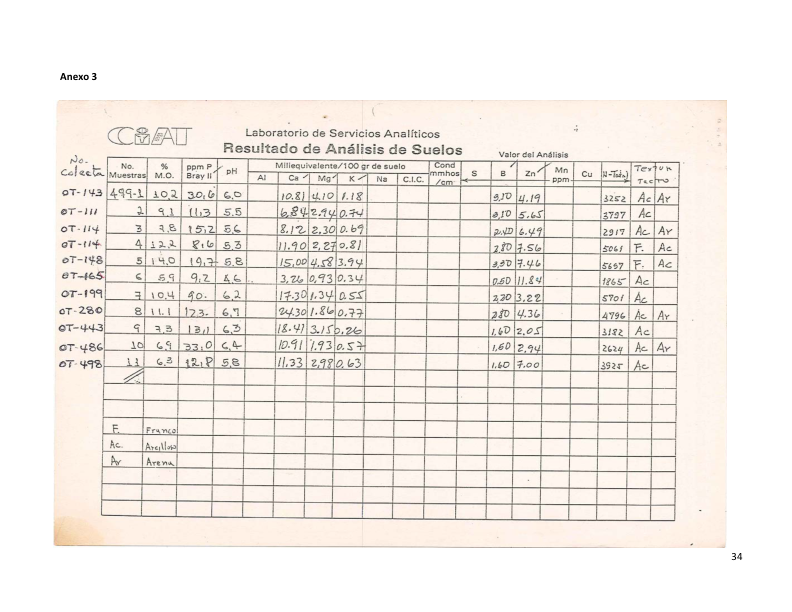 Anexo 3
CIAT
Laboratorio de Servicios Analíticos
Resultado de Análisis de Suelos
Valor del Análisis
No. Colecta No. Muestras % M.O. ppm P Bray II pH Miliequivalente/100 gr de suelo Al Ca Mg K Na C.I.C. Cond mmhos /cm S B Zn Mn ppm Cu N-Total Textura Tacto
OT-143 499-1 10,2 30,6 6,0 10.81 4.10 1.18 4.19 3252 Ac Ar
OT-111 2 9,1 11,3 5.5 6,84 2.94 0.74 5.65 3797 Ac
OT-114 3 15,2 5,6 8.12 2.30 0.69 2.40 6.49 2917 Ac Ar
OT-114 4 12,2 8,6 5,3 11.90 2,27 0.81 2.80 7.56 5061 F. Ac
OT-148 5 14,0 19,7 5,8 15,00 4.58 3.94 7.46 5697 F. Ac
OT-165 6 5,9 9,2 4,6 3,26 0,93 0.34 0.60 11.84 1865 Ac
OT-199 7 10,4 90. 6,2 17.30 1.34 0.55 2,20 3.22 5701 Ac
OT-280 8 11,1 6,7 24.30 1.86 0.77 2.80 4.36 4796 Ac Ar
OT-443 9 7,3 13,1 6,3 18.41 3.15 0.26 1,60 2,05 3182 Ac
OT-486 10 6,9 33,0 6,4 10.91 1.93 0.57 1,60 2,94 2624 Ac Ar
OT-498 11 6,3 12,8 5,8 11.33 2,98 0,63 1.60 7.00 3925 Ac
F. Franco
Ac. Arcilloso
Ar Arena
34